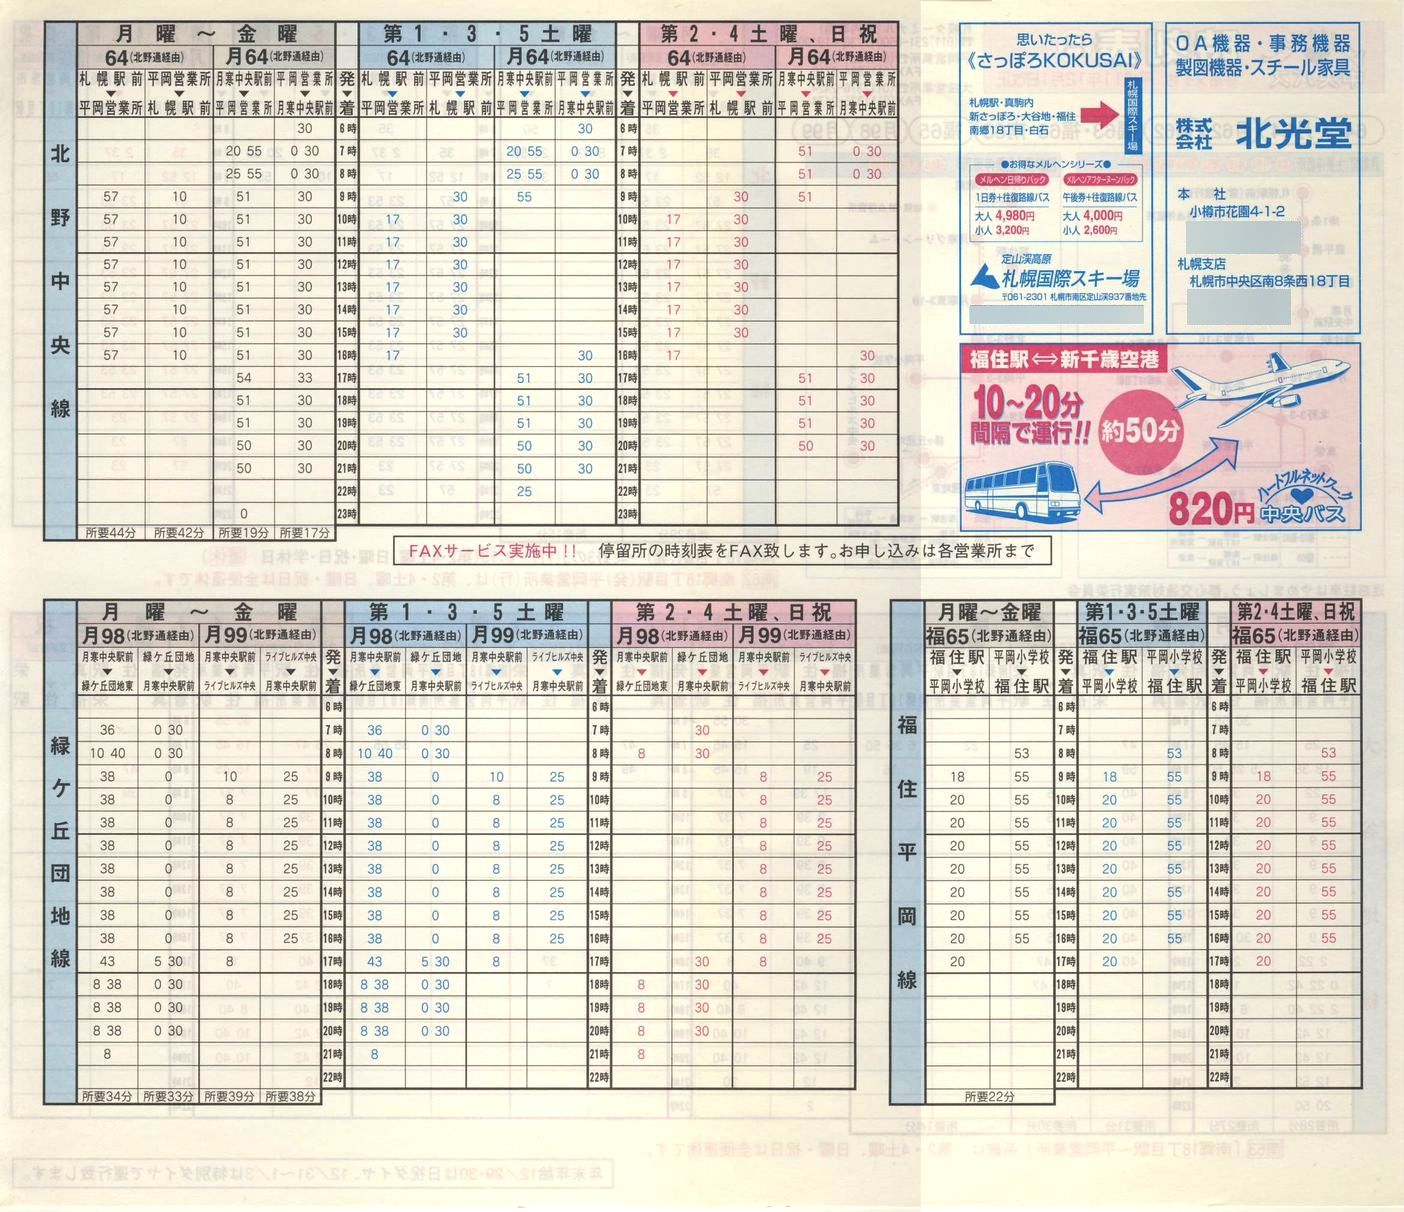 北野中央線
月曜～金曜 第1・3・5土曜 第2・4土曜、日祝
64(北野通経由) 月64(北野通経由) 64(北野通経由) 月64(北野通経由) 64(北野通経由) 月64(北野通経由)
札幌駅前 平岡営業所 月寒中央駅前 平岡営業所 発 札幌駅前 平岡営業所 月寒中央駅前 平岡営業所 発 札幌駅前 平岡営業所 月寒中央駅前 平岡営業所
▼ ▼ ▼ ▼ ▼ ▼ ▼ ▼ ▼ ▼ ▼ ▼ ▼ ▼
平岡営業所 札幌駅前 平岡営業所 月寒中央駅前 着 平岡営業所 札幌駅前 平岡営業所 月寒中央駅前 着 平岡営業所 札幌駅前 平岡営業所 月寒中央駅前
30 6時 30 6時
20 55 0 30 7時 20 55 0 30 7時 51 0 30
25 55 0 30 8時 25 55 0 30 8時 51 0 30
57 10 51 30 9時 30 55 9時 30 51
57 10 51 30 10時 17 30 10時 17 30
57 10 51 30 11時 17 30 11時 17 30
57 10 51 30 12時 17 30 12時 17 30
57 10 51 30 13時 17 30 13時 17 30
57 10 51 30 14時 17 30 14時 17 30
57 10 51 30 15時 17 30 15時 17 30
57 10 51 30 16時 17 30 16時 17 30
54 33 17時 51 30 17時 51 30
51 30 18時 51 30 18時 51 30
51 30 19時 51 30 19時 51 30
50 30 20時 50 30 20時 50 30
50 30 21時 50 30 21時
22時 25 22時
0 23時 23時
所要44分 所要42分 所要19分 所要17分
思いたったら
《さっぽろKOKUSAI》
札幌駅・真駒内
新さっぽろ・大谷地・福住
南郷18丁目・白石
札幌国際スキー場
●お得なメルヘンシリーズ●
メルヘン日帰りパック メルヘンアフターヌーンパック
1日券＋往復路線バス 午後券＋往復路線バス
大人 4,980円 大人 4,000円
小人 3,200円 小人 2,600円
定山渓高原
札幌国際スキー場
〒061-2301 札幌市南区定山渓937番地先
OA機器・事務機器
製図機器・スチール家具
株式会社 北光堂
本 社
小樽市花園4-1-2
札幌支店
札幌市中央区南8条西18丁目
福住駅⇔新千歳空港
10～20分
間隔で運行!!
約50分
820円
ハートフルネットワーク
中央バス
FAXサービス実施中!! 停留所の時刻表をFAX致します。お申し込みは各営業所まで
緑ケ丘団地線
月曜～金曜 第1・3・5土曜 第2・4土曜、日祝
月98(北野通経由) 月99(北野通経由) 月98(北野通経由) 月99(北野通経由) 月98(北野通経由) 月99(北野通経由)
月寒中央駅前 緑ケ丘団地 月寒中央駅前 ライブヒルズ中央 発 月寒中央駅前 緑ケ丘団地 月寒中央駅前 ライブヒルズ中央 発 月寒中央駅前 緑ケ丘団地 月寒中央駅前 ライブヒルズ中央
▼ ▼ ▼ ▼ ▼ ▼ ▼ ▼ ▼ ▼ ▼ ▼ ▼ ▼
緑ケ丘団地東 月寒中央駅前 ライブヒルズ中央 月寒中央駅前 着 緑ケ丘団地東 月寒中央駅前 ライブヒルズ中央 月寒中央駅前 着 緑ケ丘団地東 月寒中央駅前 ライブヒルズ中央 月寒中央駅前
6時 6時
36 0 30 7時 36 0 30 7時 30
10 40 0 30 8時 10 40 0 30 8時 8 30
38 0 10 25 9時 38 0 10 25 9時 8 25
38 0 8 25 10時 38 0 8 25 10時 8 25
38 0 8 25 11時 38 0 8 25 11時 8 25
38 0 8 25 12時 38 0 8 25 12時 8 25
38 0 8 25 13時 38 0 8 25 13時 8 25
38 0 8 25 14時 38 0 8 25 14時 8 25
38 0 8 25 15時 38 0 8 25 15時 8 25
38 0 8 25 16時 38 0 8 25 16時 8 25
43 5 30 8 17時 43 5 30 8 17時 30 8
8 38 0 30 18時 8 38 0 30 18時 8 30
8 38 0 30 19時 8 38 0 30 19時 8 30
8 38 0 30 20時 8 38 0 30 20時 8 30
8 21時 8 21時 8
22時 22時
所要34分 所要33分 所要39分 所要38分
福住平岡線
月曜～金曜 第1・3・5土曜 第2・4土曜、日祝
福65(北野通経由) 福65(北野通経由) 福65(北野通経由)
福住駅 平岡小学校 発 福住駅 平岡小学校 発 福住駅 平岡小学校
▼ ▼ ▼ ▼ ▼ ▼ ▼ ▼
平岡小学校 福住駅 着 平岡小学校 福住駅 着 平岡小学校 福住駅
6時 6時
7時 7時
53 8時 53 8時 53
18 55 9時 18 55 9時 18 55
20 55 10時 20 55 10時 20 55
20 55 11時 20 55 11時 20 55
20 55 12時 20 55 12時 20 55
20 55 13時 20 55 13時 20 55
20 55 14時 20 55 14時 20 55
20 55 15時 20 55 15時 20 55
20 55 16時 20 55 16時 20 55
20 17時 20 17時 20
18時 18時
19時 19時
20時 20時
21時 21時
22時 22時
所要22分